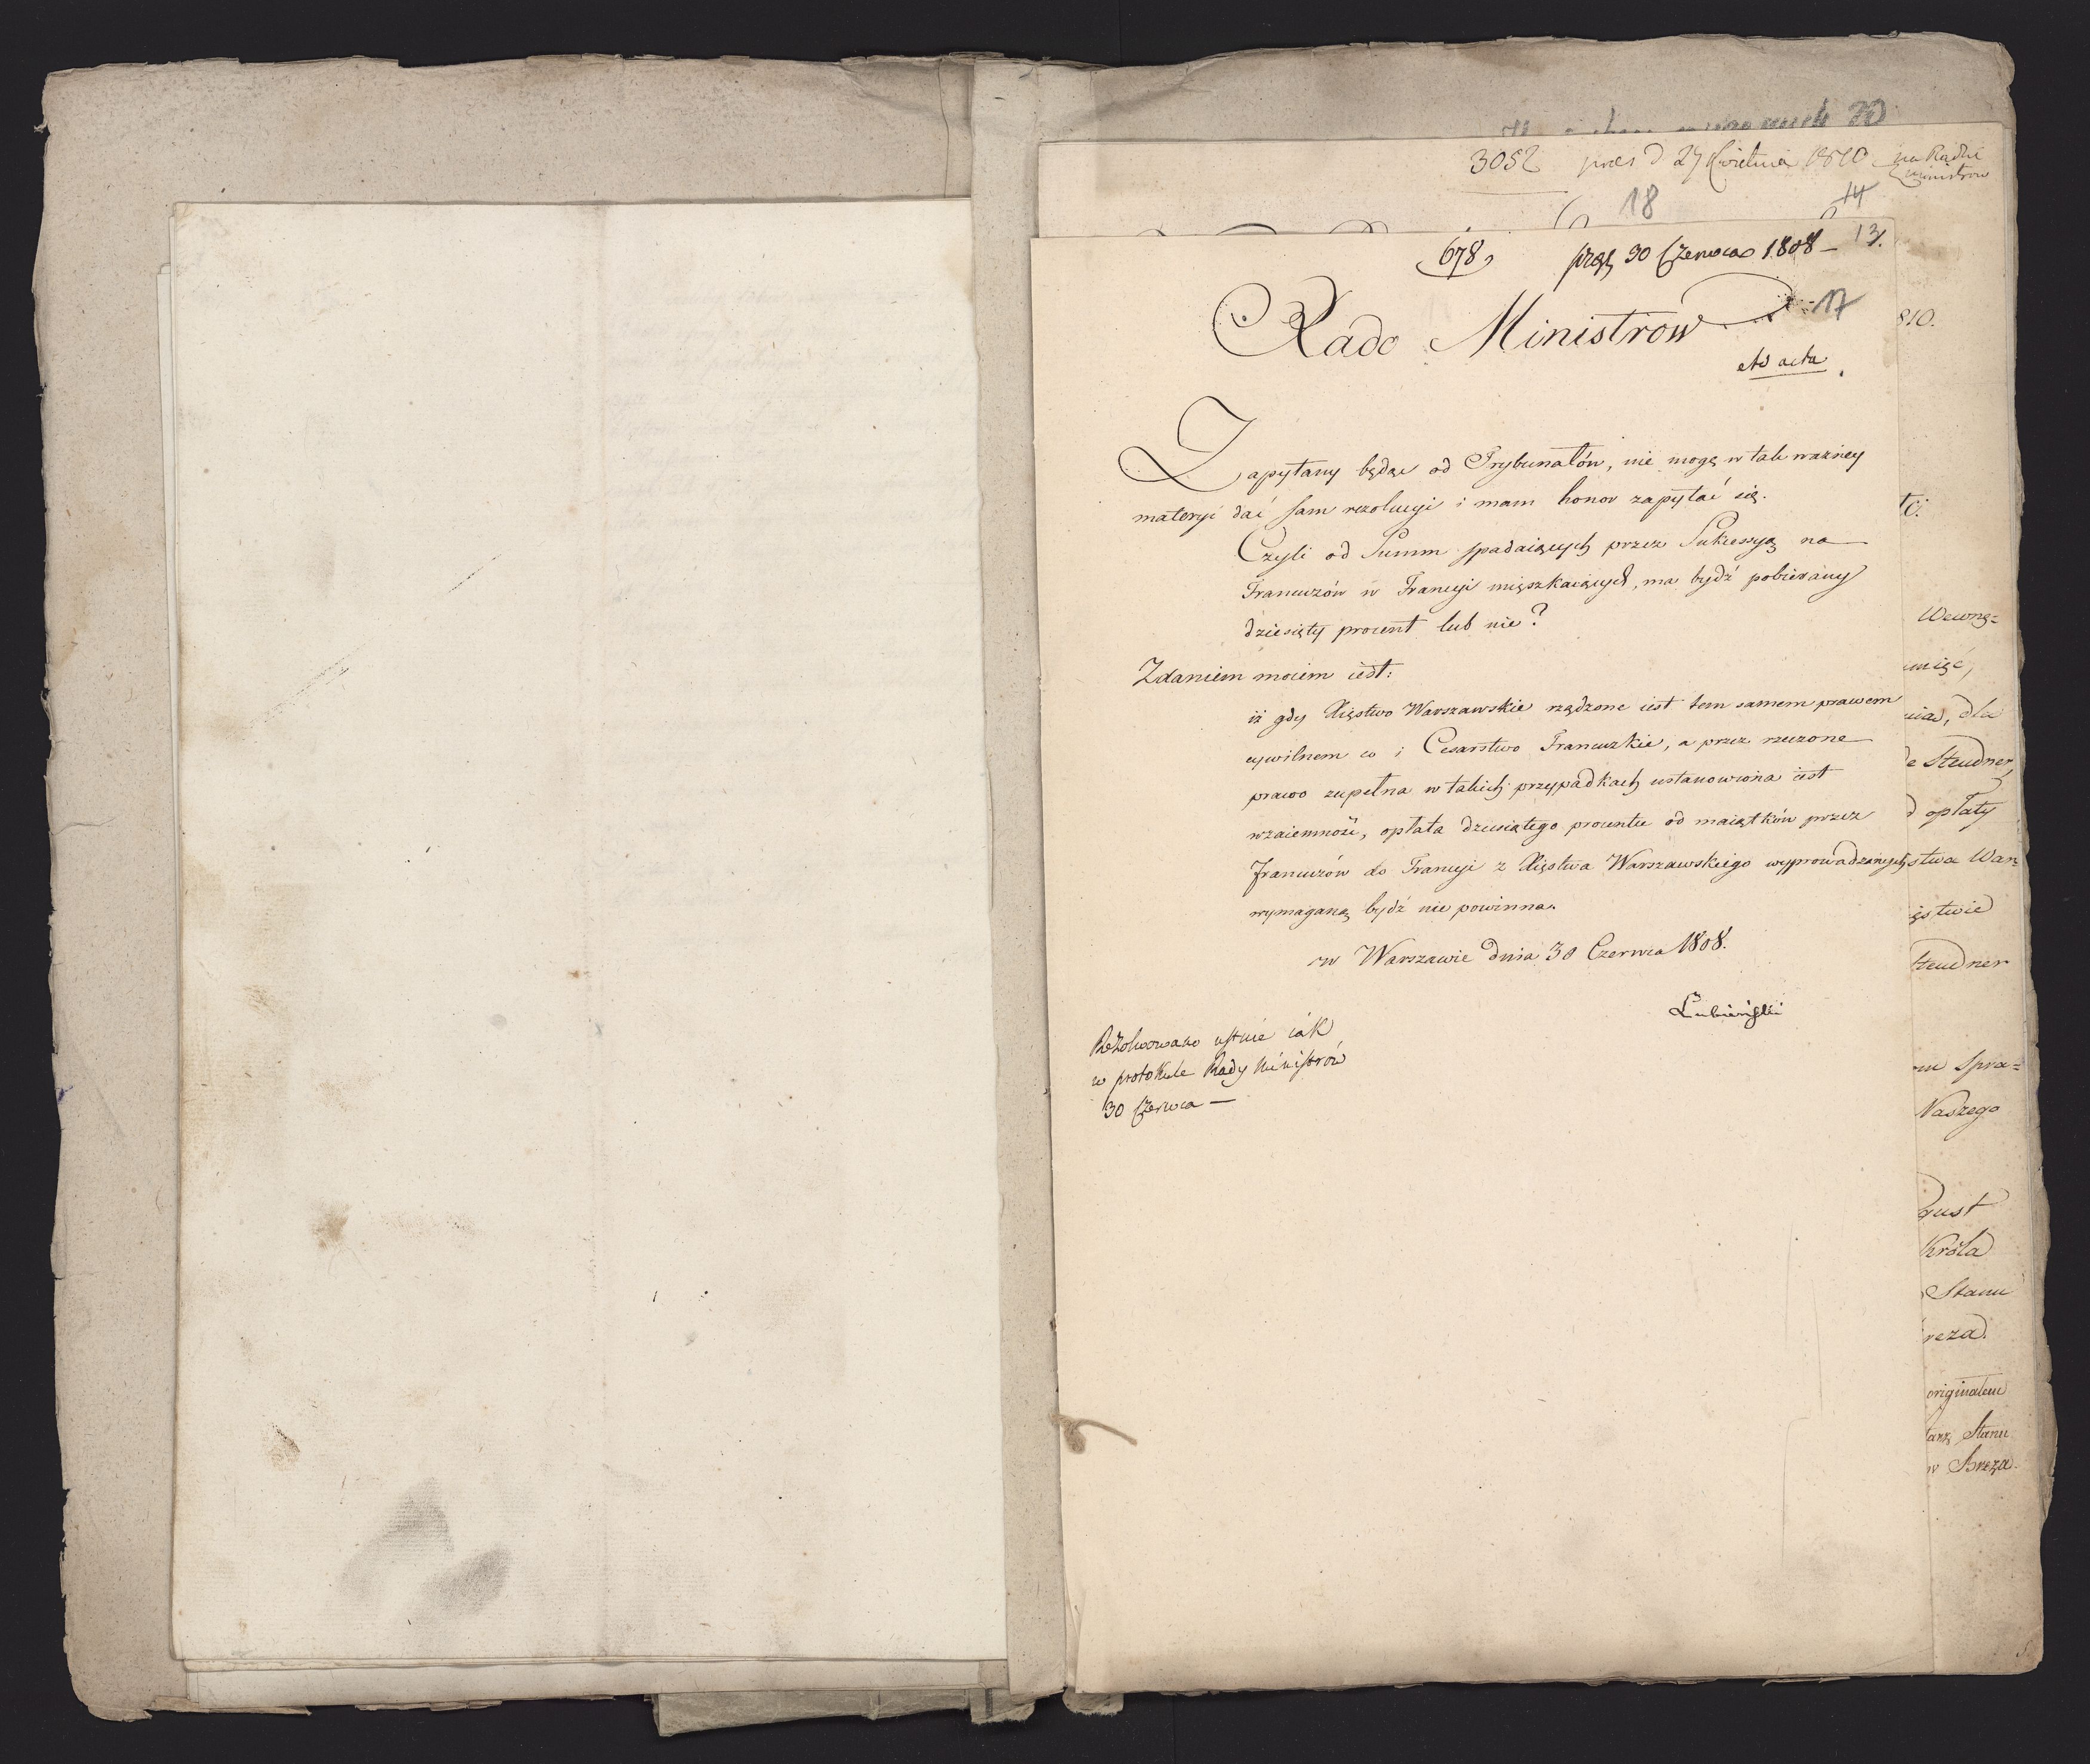 3052 pres d 27 Kwietnia 1810 na Radzie
Ministrow
18 14
678, prez 30 Czerwca 1808 – 13.
17
Rado Ministrow
ad acta
Zapytany będąc od Trybunałów, nie mogę w tak ważney
materyi dać sam rezolucyi i mam honor zapytać się.
Czyli od Summ spadaiących przez Sukcessyą na
Francuzów w Francyi mięszkaiących, ma bydź pobierany
dziesięty procent lub nie?
Zdaniem moiem iest:
iż gdy Xięstwo Warszawskie rządzone iest tem samem prawem
cywilnem co i Cesarstwo Francuzkie, a przez rzeczone
prawo zupełna w takich przypadkach ustanowiona iest
wzaiemność, opłata dziesiątego procentu od maiątków przez
Francuzów do Francyi z Xięstwa Warszawskiego wyprowadzonych
wymaganą bydź nie powinna.
w Warszawie dnia 30 Czerwca 1808.
Łubieński
Rezolwowano ustnie iak
w protokule Rady Ministrów
30 Czerwca —
810.
Wewnę=
dla
Steudner,
opłaty
stwa War
Steudner
Spra=
Naszego
gust
Króla
Stanu
reza.
originalem
Stanu
Breza.